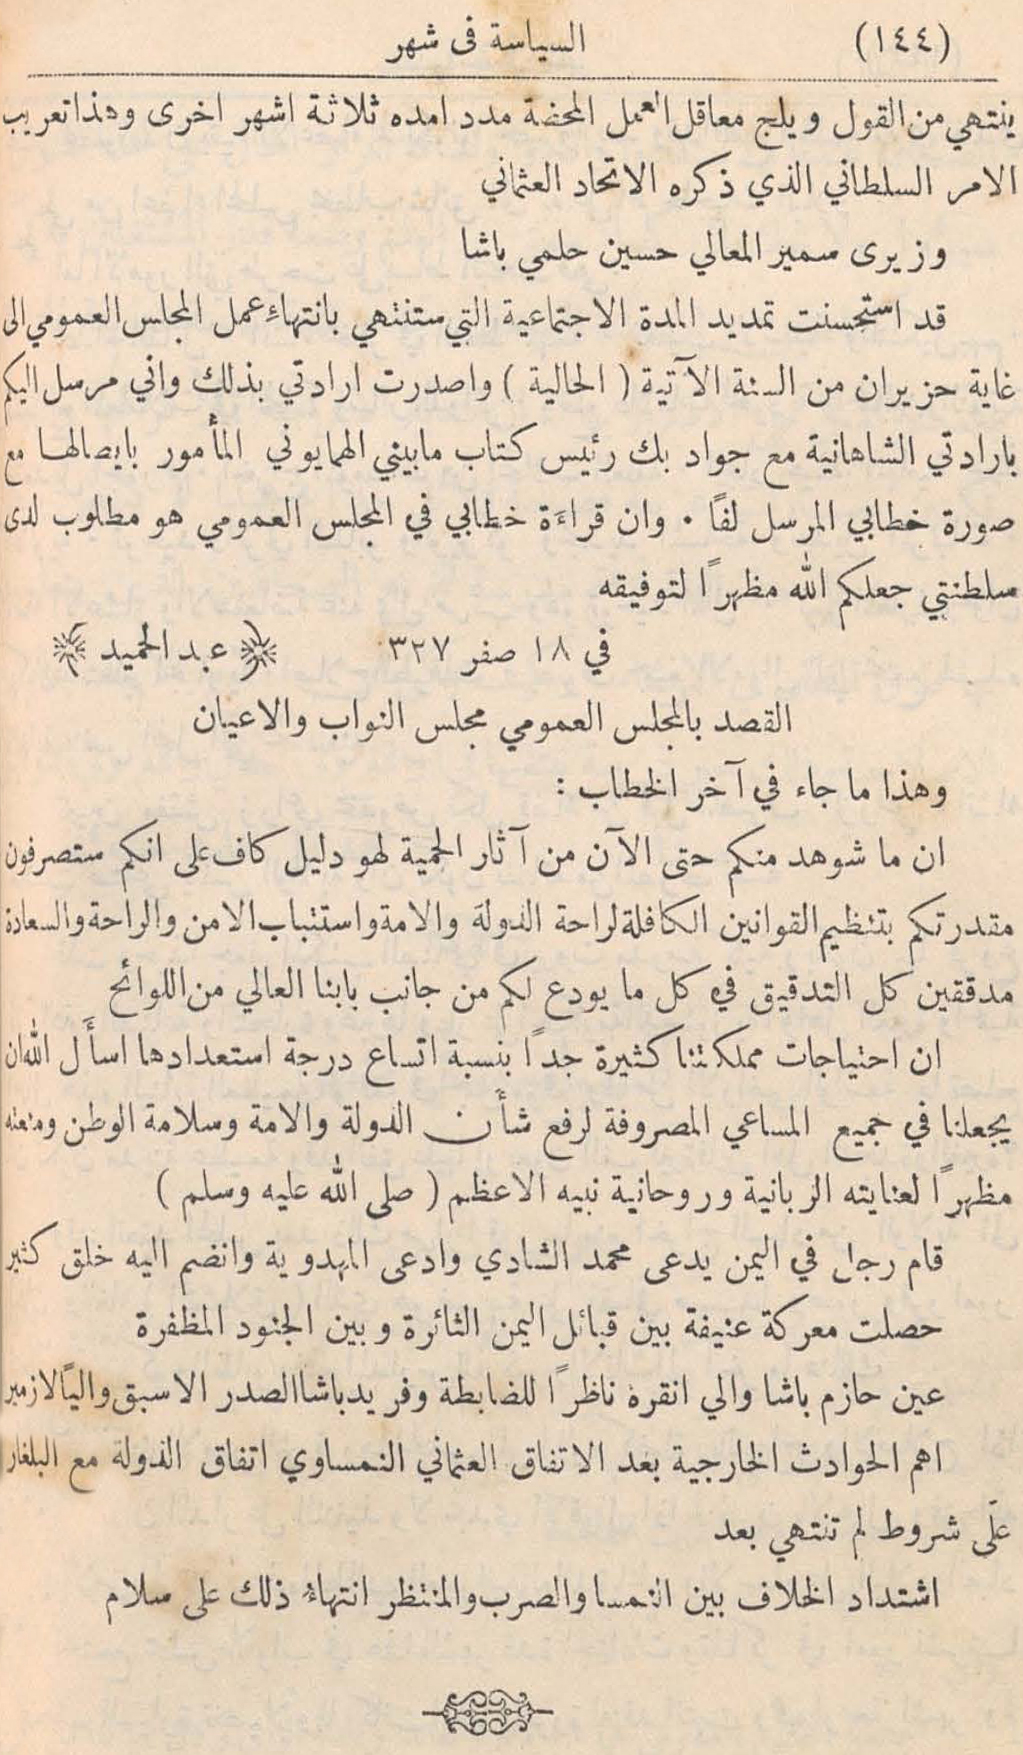 (١٤٤) السياسة في شهر
ينتهي من القول ويلج معاقل العمل المحضة مدد امده ثلاثة اشهر اخرى وهذا تعريب
الامر السلطاني الذي ذكره الاتحاد العثماني
وزيرى سمير المعالي حسين حلمي باشا
قد استحسنت تمديد المدة الاجتماعية التي ستنتهي بانتهاءِ عمل المجلس العمومي الى
غاية حزيران من السنة الآتية ( الحالية ) واصدرت ارادتي بذلك واني مرسل اليكم
بارادتي الشاهانية مع جواد بك رئيس كتاب مابيني الهمايوني المأمور بايصالها مع
صورة خطابي المرسل لفاً ٠ وان قراءَة خطابي في المجلس العمومي هو مطلوب لدى
سلطنتي جعلكم الله مظهراً لتوفيقه
في ١٨ صفر ٣٢٧ ﴿ عبد الحميد ﴾
القصد بالمجلس العمومي مجلس النواب والاعيان
وهذا ما جاء في آخر الخطاب :
ان ما شوهد منكم حتى الآن من آثار الحمية لهو دليل كاف على انكم ستصرفون
مقدرتكم بتنظيم القوانين الكافلة لراحة الدولة والامة واستتباب الامن والراحة والسعادة
مدققين كل التدقيق في كل ما يودع لكم من جانب بابنا العالي من اللوائح
ان احتياجات مملكتنا كثيرة جداً بنسبة اتساع درجة استعدادها اسأَل الله ان
يجعلنا في جميع المساعي المصروفة لرفع شأن الدولة والامة وسلامة الوطن ومنعته
مظهراً لعنايته الربانية وروحانية نبيه الاعظم ( صلى الله عليه وسلم )
قام رجل في اليمن يدعى محمد الشادي وادعى المهدوية وانضم اليه خلق كثير
حصلت معركة عنيفة بين قبائل اليمن الثائرة وبين الجنود المظفرة
عين حازم باشا والي انقرة ناظراً للضابطة وفريد باشا الصدر الاسبق والياً لازمير
اهم الحوادث الخارجية بعد الاتفاق العثماني النمساوي اتفاق الدولة مع البلغار
على شروط لم تنتهي بعد
اشتداد الخلاف بين النمسا والصرب والمنتظر انتهاءُ ذلك على سلام